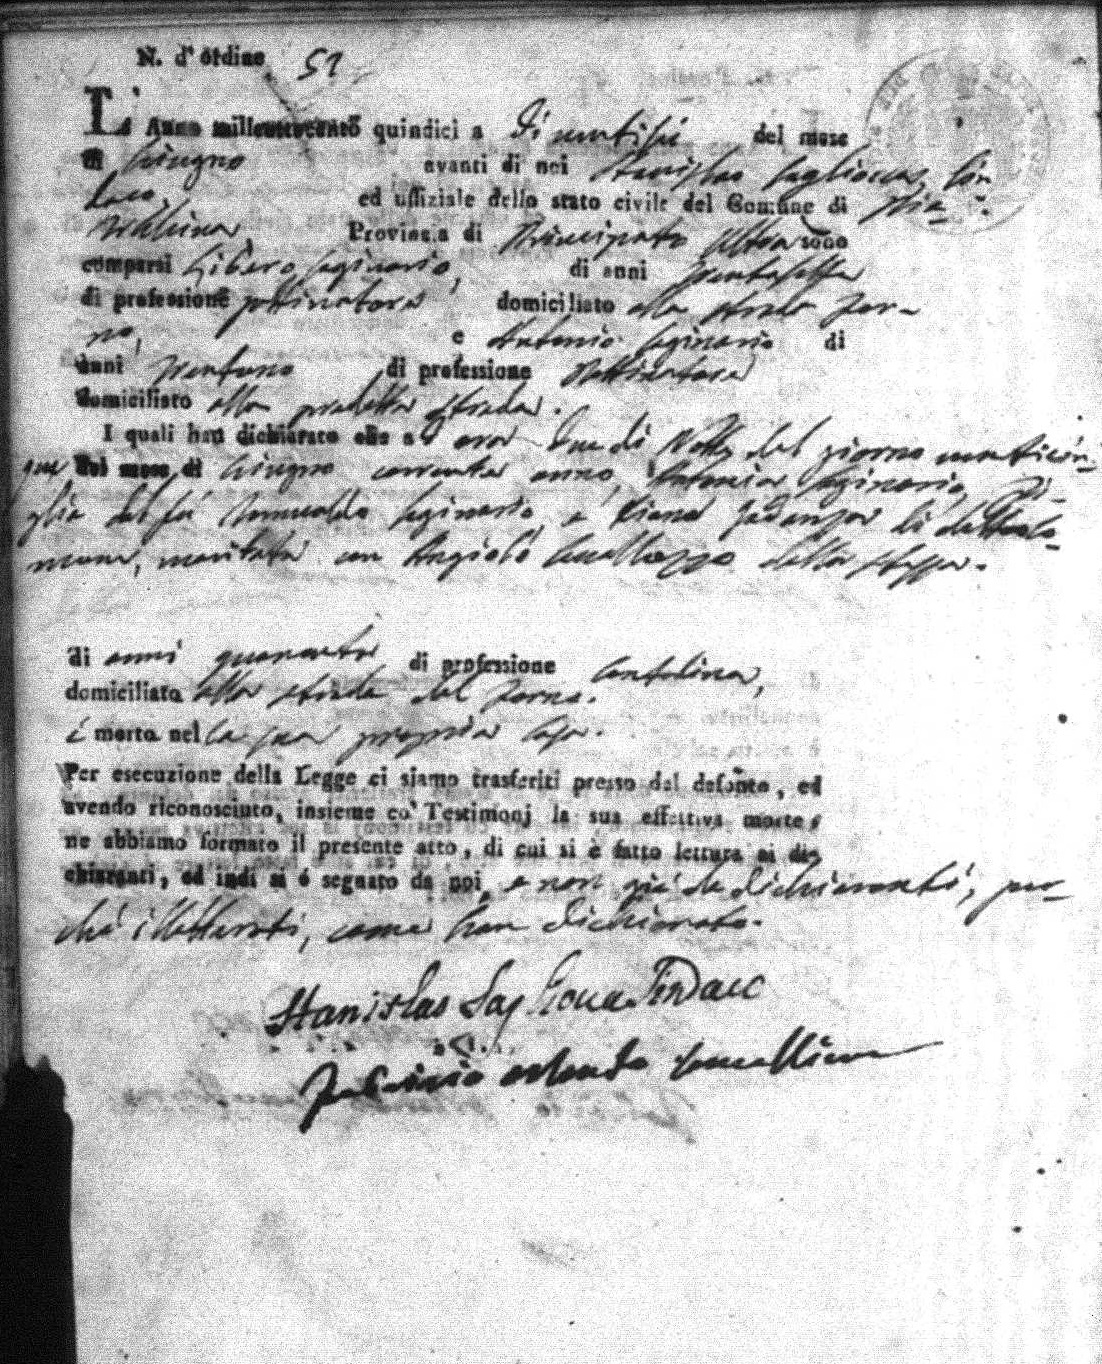 N. d'ordine 51
L'Anno milleottocento quindici a dì ventisei del mese
di Giugno avanti di noi Stanislao Sin-
daco, ed uffiziale dello stato civile del Comune di
Provincia di Principato Ultra sono
comparsi Libero Saginario, di anni trentasette
di professione domiciliato alla strada For-
no, e Antonio Saginario di
anni trentuno di professione
domiciliato alla predetta strada.
I quali han dichiarato che a ore due di notte del giorno venticin-
que del mese di Giugno corrente anno, Antonia Saginario, fi-
glia del fu Romualdo Saginario, e di detto Co-
mune, maritata con Angiolo dello stesso.
di anni quaranta di professione Contadina,
domiciliata alla strada del Forno.
è morta nella sua propria Casa.
Per esecuzione della Legge ci siamo trasferiti presso del defonto, ed
avendo riconosciuto, insieme co' Testimonj la sua effettiva morte,
ne abbiamo formato il presente atto, di cui si è fatto lettura ai di-
chiaranti, ed indi si è segnato da noi, e non già da dichiaranti, per-
ché illetterati, come han dichiarato.
Stanislao Sindaco